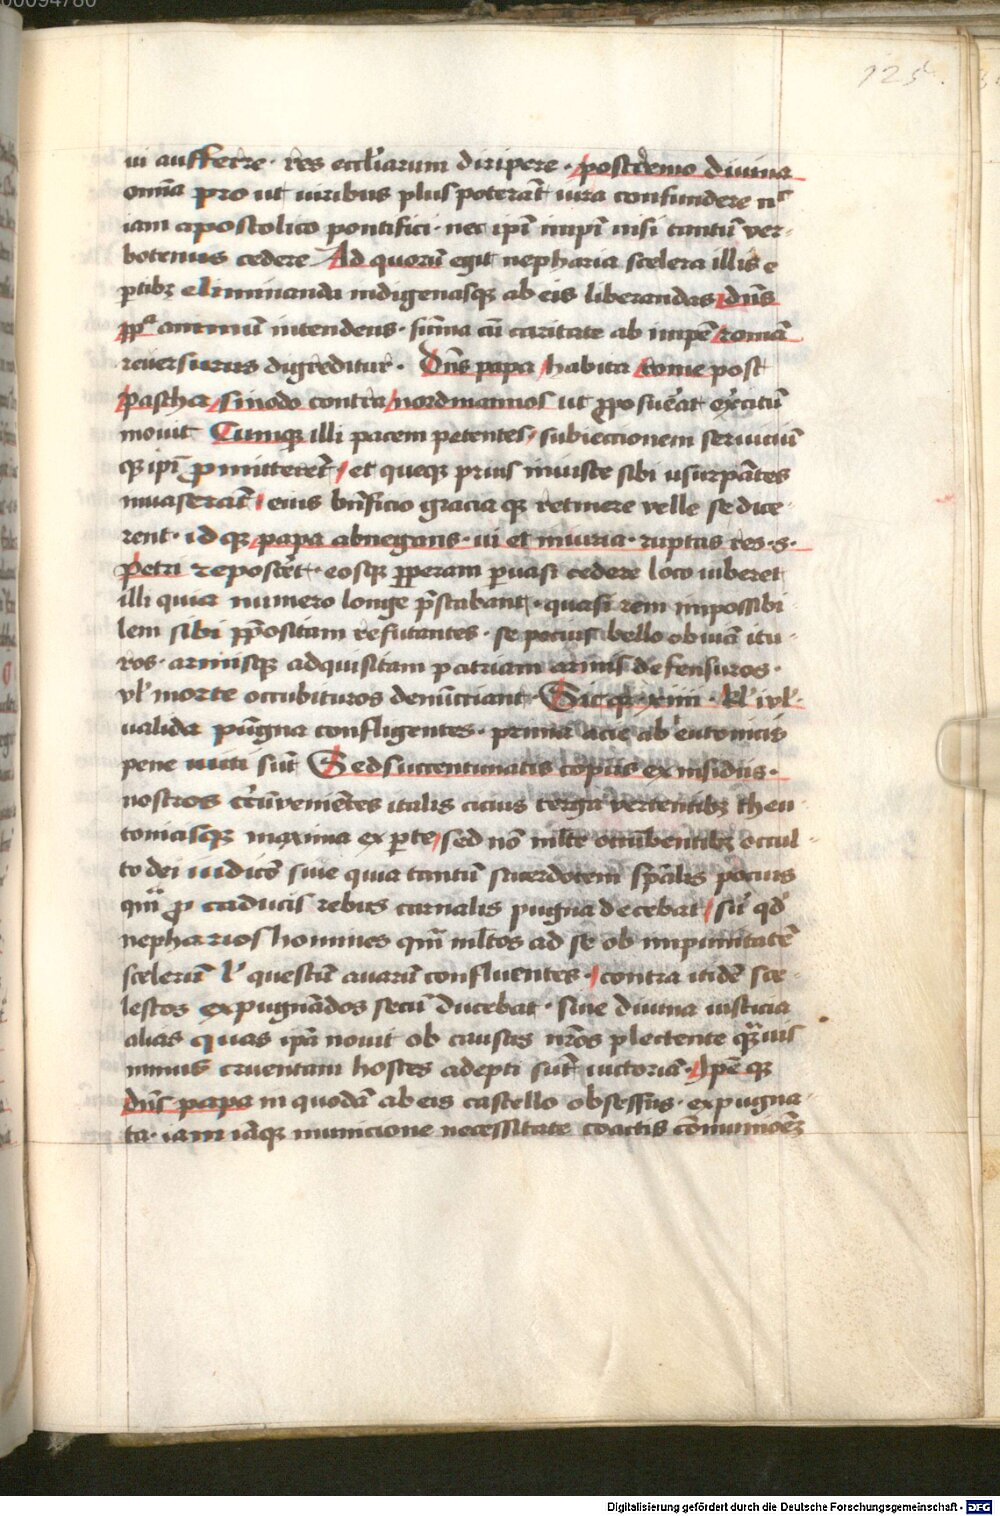 00094780
125.
ui aufferre · res eccl'iarum diripere · postremo diuina
om̄ia pro ut uiribus plus poterāt iura confundere n
iam apostolico pontifici · nec ip̄i impij nisi tantū ver-
botenus cedere Ad quorū egit nepharia scelera illis e
ptibꝫ eliminanda indigenasqꝫ ab eis liberandas dn̄s
pp̄ animū intendens · sūma cū caritate ab impe romā
reuersurus digreditur · Dn̄s papa habita rome post
pascha sinodo contra nordmannos ut p̄posuerat exercitū
mouit Cumqꝫ illi pacem petentes subieccionem seruiciū
qꝫ ip̄i ꝓmitteret et queqꝫ prius iniuste sibi usurpātes
inuaserāt eius bn̄ficio gracia qꝫ retinere velle se dice
rent · idqꝫ papa abnegans · ui et iniuria · ruptas res · s ·
Petri reposcēt · eosqꝫ ꝓperam ꝑuasi cedere loco iuberet
illi quia numero longe p̄stabant · quasi rem impossibi
lem sibi p̄positam refutantes · se pocius bello obuiā itu
ros · armisqꝫ adquisitam patriam armis defensuros ·
vl' morte occubituros denūctiant · Sicqꝫ · xiiii · kl' iul' ·
ualida pugna confligentes · prima acie ab eutonicis
pene uicti sūt Sed succenturiatis copiis ex insidiis ·
nostros circūuenientes italis cicius terga vertentibꝫ theu
tonicisqꝫ maxima ex ꝑte sed nō inlte occūbentibꝫ occul
to dei iudicō siue quia tantū sacerdotem sp̄alis pocius
qm̄ ꝓ caducis rebus carnalis pugna decebat siu' qd'
nepharios homines qm̄ ml'tos ad se ob impunitatē
scelerū l' questū auarū confluentes · contra itidē sce-
lestos expugnādos secū ducebat · siue diuina iusticia
alias quas ip̄a nouit ob causas nr̄os plectente qᷓuis
nimis cruentam hostes adepti sūt uictoriā · Ip̄e qꝫ
dn̄s papa in quodā ab eis castello obsessus · expugna-
ta · iam iāqꝫ municione necessitate coactis cōmunionē
Digitalisierung gefördert durch die Deutsche Forschungsgemeinschaft - DFG